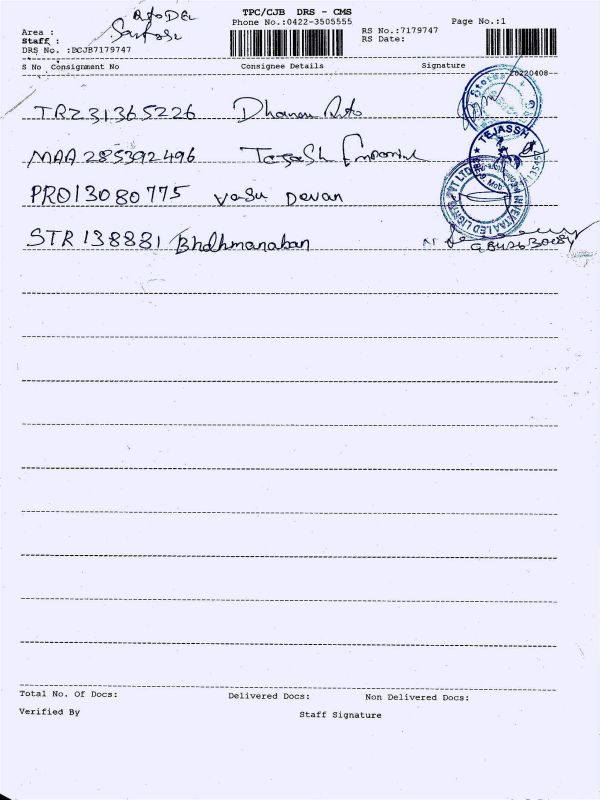 TPC/CJB DRS - CMS
Phone No.:0422-3505555
Page No.:1
Area :
Staff : Santosh
DRS No. :BCJB7179747
RS No.:7179747
RS Date:
S No Consignment No Consignee Details Signature
20220408
TRZ31365226 Dhanam Auto
MAA 285392496 Tejash
TEJASSH
PRO13080775 Vasu Devan
STR 138831
Total No. Of Docs: Delivered Docs: Non Delivered Docs:
Verified By Staff Signature